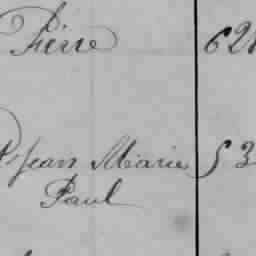 Pierre 62
Jean Marie 53
Paul